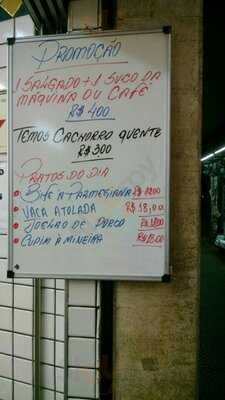 PROMOÇÃO
1 SALGADO + 1 SUCO DA
MÁQUINA OU CAFÉ
R$ 400
TEMOS CACHORRO QUENTE
R$ 300
PRATOS DO DIA
BIFE À PARMEGIANA R$
VACA ATOLADA R$ 18,00
JOELHO DE PORCO
CUPIM À MINEIRA